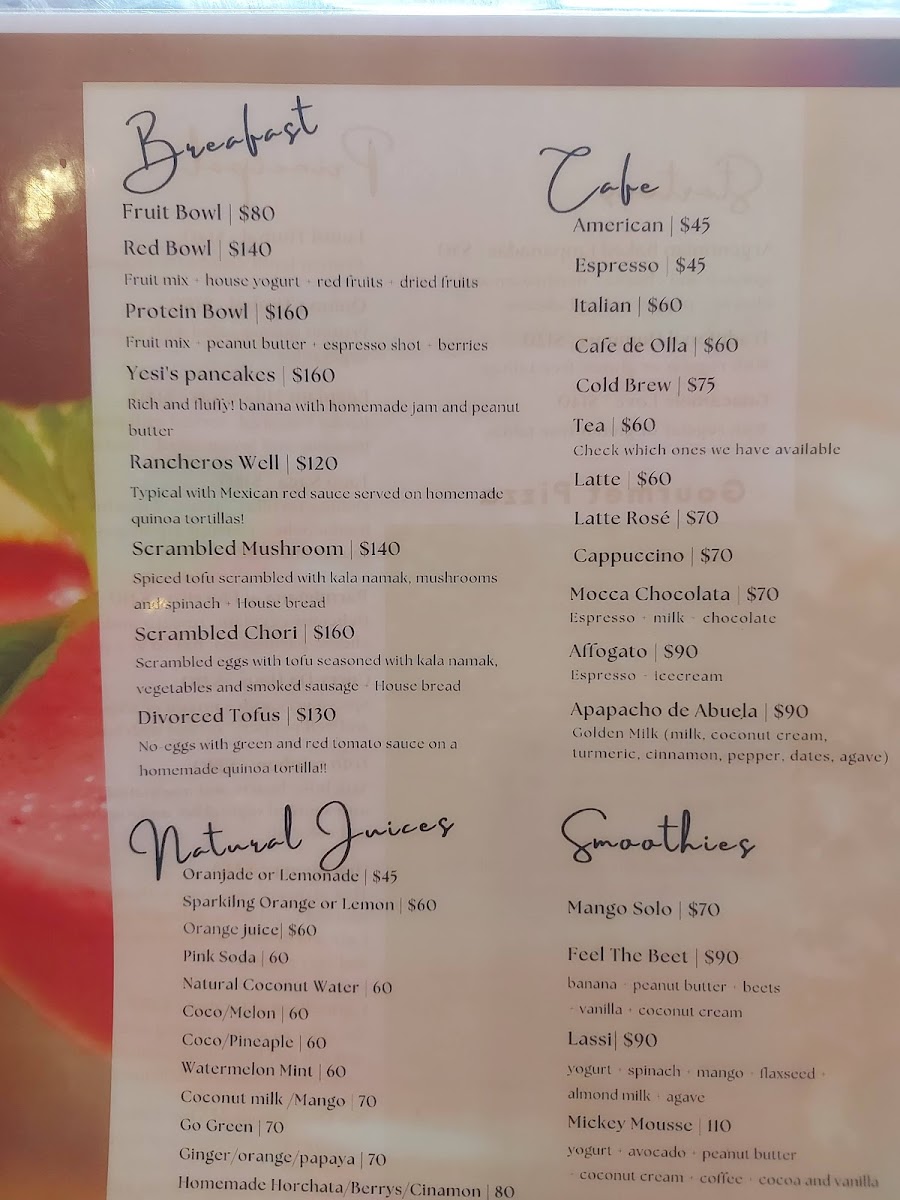 Breafast
Fruit Bowl | $80
Red Bowl | $140
Fruit mix + house yogurt + red fruits + dried fruits
Protein Bowl | $160
Fruit mix + peanut butter + espresso shot + berries
Yesi's pancakes | $160
Rich and fluffy! banana with homemade jam and peanut
butter
Rancheros Well | $120
Typical with Mexican red sauce served on homemade
quinoa tortillas!
Scrambled Mushroom | $140
Spiced tofu scrambled with kala namak, mushrooms
and spinach + House bread
Scrambled Chori | $160
Scrambled eggs with tofu seasoned with kala namak,
vegetables and smoked sausage + House bread
Divorced Tofus | $130
No-eggs with green and red tomato sauce on a
homemade quinoa tortilla!!
Natural Juices
Oranjade or Lemonade | $45
Sparkilng Orange or Lemon | $60
Orange juice| $60
Pink Soda | 60
Natural Coconut Water | 60
Coco/Melon | 60
Coco/Pineaple | 60
Watermelon Mint | 60
Coconut milk /Mango | 70
Go Green | 70
Ginger/orange/papaya | 70
Homemade Horchata/Berrys/Cinamon | 80
Cafe
American | $45
Espresso | $45
Italian | $60
Cafe de Olla | $60
Cold Brew | $75
Tea | $60
Check which ones we have available
Latte | $60
Latte Rosé | $70
Cappuccino | $70
Mocca Chocolata | $70
Espresso + milk + chocolate
Affogato | $90
Espresso + icecream
Apapacho de Abuela | $90
Golden Milk (milk, coconut cream,
turmeric, cinnamon, pepper, dates, agave)
Smoothies
Mango Solo | $70
Feel The Beet | $90
banana + peanut butter + beets
+ vanilla + coconut cream
Lassi| $90
yogurt + spinach + mango + flaxseed +
almond milk + agave
Mickey Mousse | 110
yogurt + avocado + peanut butter
+ coconut cream + coffee + cocoa and vanilla